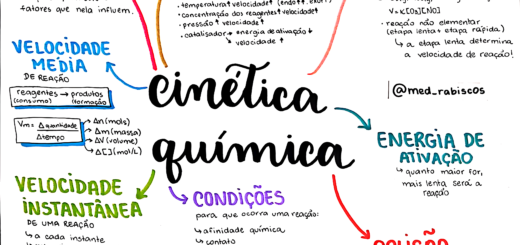 fatores que nela influem.
• temperatura↑ velocidade↑ (endo↑↑, exo↑)
• concentração dos reagentes↑ velocidade↑
• pressão↑ velocidade↑
• catalisador → energia de ativação↓
velocidade↑
V=K[O3][NO]
• reação não elementar
(etapa lenta + etapa rápida)
↳ a etapa lenta determina
a velocidade de reação!
@med_rabiscos
VELOCIDADE
MÉDIA
DE REAÇÃO
reagentes → produtos
(consumo) (formação)
Vm = Δquantidade
Δtempo
Δn (mols)
Δm (massa)
ΔV (volume)
Δ[ ] (mol/L)
cinética
química
ENERGIA DE
ATIVAÇÃO
↳ quanto maior for,
mais lenta será a
reação
VELOCIDADE
INSTANTÂNEA
DE UMA REAÇÃO
↳ a cada instante
CONDIÇÕES
para que ocorra uma reação:
↳ afinidade química
↳ contato